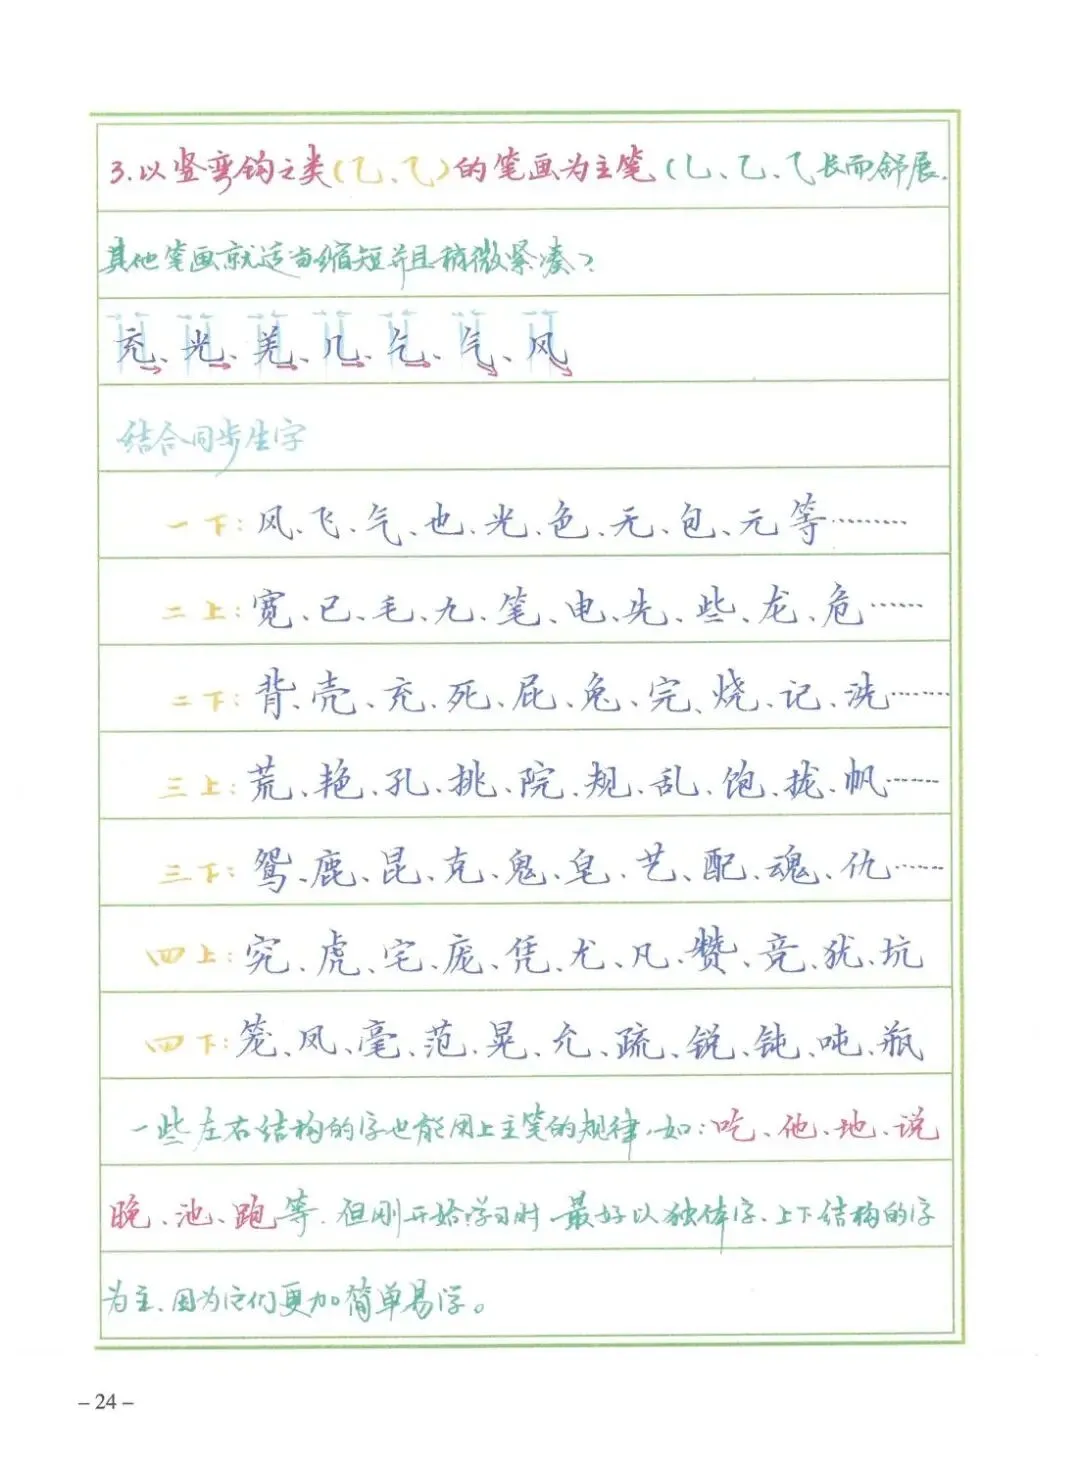 3.以竖弯钩之类(乙、⺄)的笔画为主笔(乚、乙、⺄长而舒展.
其他笔画就适当缩短并且稍微紧凑)
充、光、羌、几、乞、气、风
结合同步生字
一下:风、飞、气、也、光、色、无、包、元等………
二上:宽、已、毛、九、笔、电、先、些、龙、危……
二下:背、壳、充、死、屁、兔、完、烧、记、洗……
三上:荒、艳、孔、挑、院、规、乱、饱、拢、帆……
三下:鸳、鹿、昆、克、鬼、皂、艺、配、魂、仇……
四上:究、虎、宅、庞、凭、尤、凡、赞、竞、犹、坑
四下:笼、凤、毫、范、晃、允、疏、锐、钝、吨、瓶
一些左右结构的字也能用上主笔的规律.如:吃、他、地、说
晚、池、跑等.但刚开始学习时最好以独体字、上下结构的字
为主、因为它们更加简单易学。
-24-